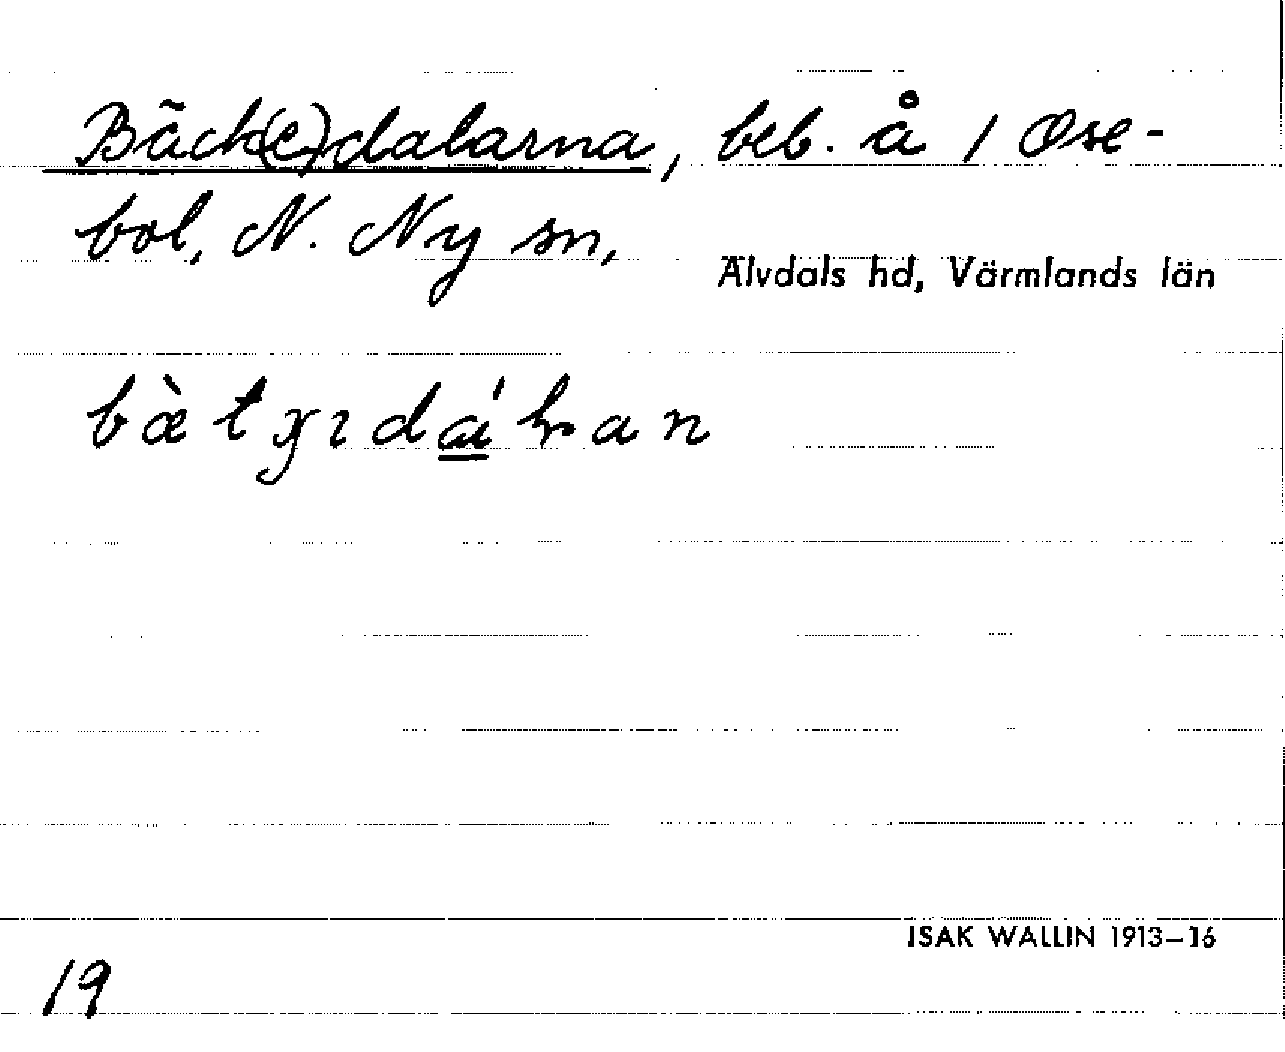 Bäck(e)dalarna, beb. å 1 Ose-
bol, N. Ny sn,
Älvdals hd, Värmlands län
bæ̀tꞡıdáꞎan
ISAK WALLIN 1913–16
19